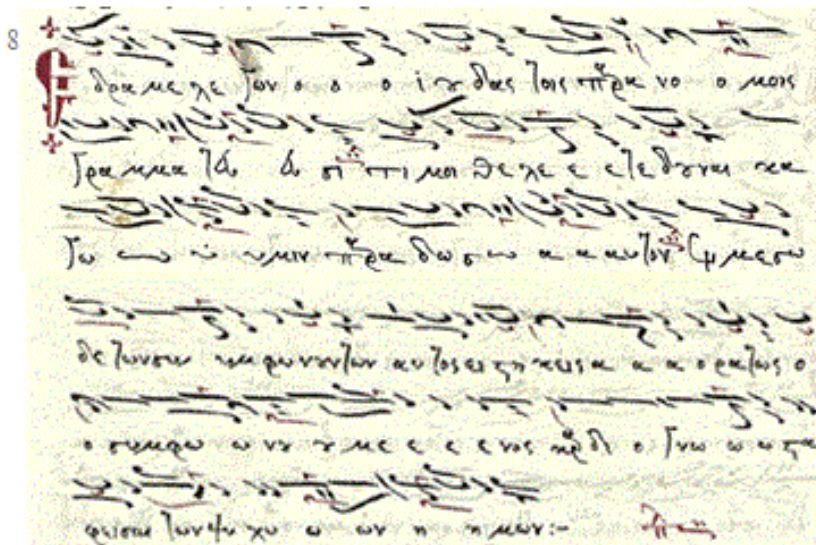 8
Ε δρα με λε γων ο ο ο ι ου δας τοις πρα νο ο μοις
γρα μμα τευ ευ σι τι μοι θε λε ε ε τε δουναι κα
γω ω υ υμιν πρα δω σω α α αυτον εμ μεσω
δε των συμφωνουντων αυτος ει στη κεις α α α ορατως ο
ο συμφω ω νου ου με ε ε ε νος κρδι ο γνω ω ω στα
φεισαι των ψυ χω ω ων η η μων:-